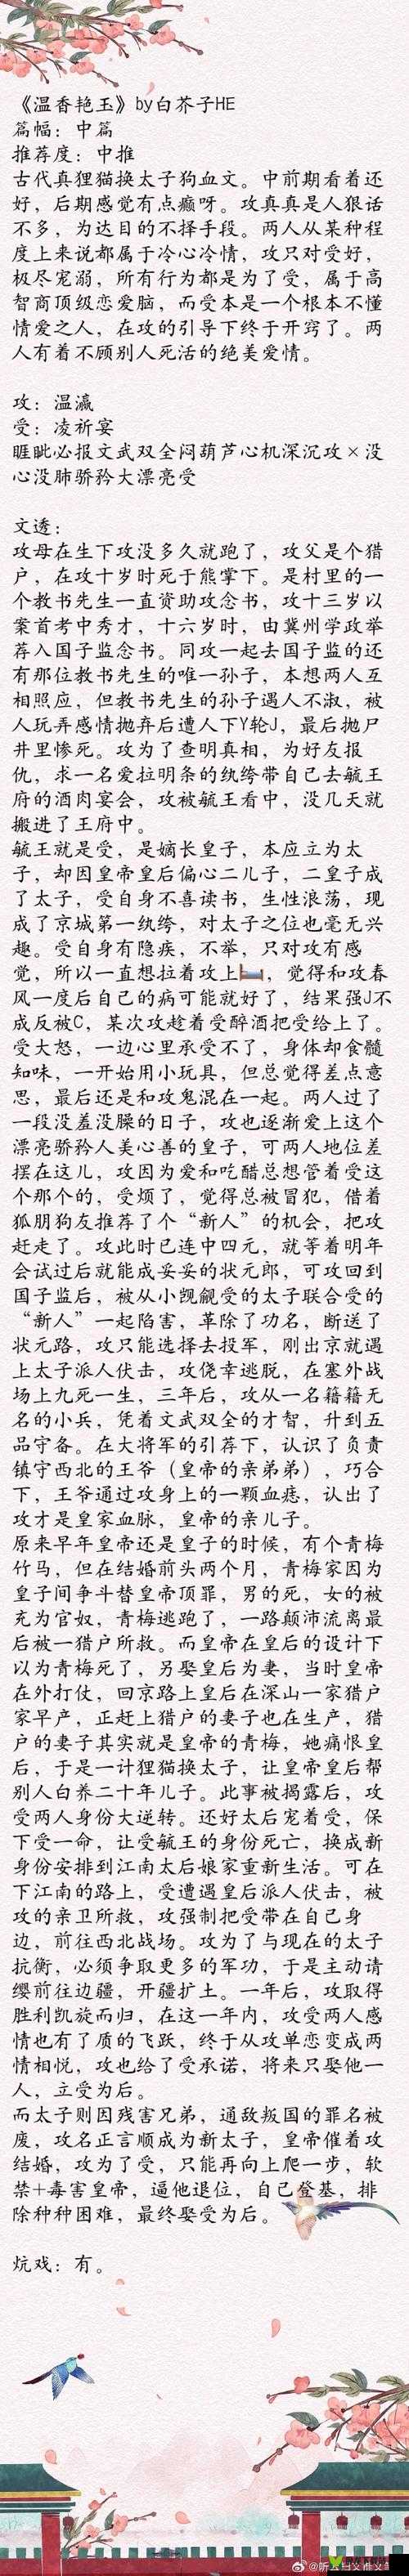 《温香艳玉》by白芥子HE
篇幅：中篇
推荐度：中推
古代真狸猫换太子狗血文。中前期看着还
好，后期感觉有点癫呀。攻真真是人狠话
不多，为达目的不择手段。两人从某种程
度上来说都属于冷心冷情，攻只对受好，
极尽宠溺，所有行为都是为了受，属于高
智商顶级恋爱脑，而受本是一个根本不懂
情爱之人，在攻的引导下终于开窍了。两
人有着不顾别人死活的绝美爱情。
攻：温瀛
受：凌祈宴
睚眦必报文武双全闷葫芦心机深沉攻×没
心没肺骄矜大漂亮受
文透：
攻母在生下攻没多久就跑了，攻父是个猎
户，在攻十岁时死于熊掌下。是村里的一
个教书先生一直资助攻念书，攻十三岁以
案首考中秀才，十六岁时，由冀州学政举
荐入国子监念书。同攻一起去国子监的还
有那位教书先生的唯一孙子，本想两人互
相照应，但教书先生的孙子遇人不淑，被
人玩弄感情抛弃后遭人下Y轮J，最后抛尸
井里惨死。攻为了查明真相，为好友报
仇，求一名爱拉明条的纨绔带自己去毓王
府的酒肉宴会，攻被毓王看中，没几天就
搬进了王府中。
毓王就是受，是嫡长皇子，本应立为太
子，却因皇帝皇后偏心二儿子，二皇子成
了太子，受自身不喜读书，生性浪荡，现
成了京城第一纨绔，对太子之位也毫无兴
趣。受自身有隐疾，不举，只对攻有感
觉，所以一直想拉着攻上🛏️，觉得和攻春
风一度后自己的病可能就好了，结果强J不
成反被C，某次攻趁着受醉酒把受给上了。
受大怒，一边心里承受不了，身体却食髓
知味，一开始用小玩具，但总觉得差点意
思，最后还是和攻鬼混在一起。两人过了
一段没羞没臊的日子，攻也逐渐爱上这个
漂亮骄矜人美心善的皇子，可两人地位差
摆在这儿，攻因为爱和吃醋总想管着受这
个那个的，受烦了，觉得总被冒犯，借着
狐朋狗友推荐了个“新人”的机会，把攻
赶走了。攻此时已连中四元，就等着明年
会试过后就能成妥妥的状元郎，可攻回到
国子监后，被从小觊觎受的太子联合受的
“新人”一起陷害，革除了功名，断送了
状元路，攻只能选择去投军，刚出京就遇
上太子派人伏击，攻侥幸逃脱，在塞外战
场上九死一生，三年后，攻从一名籍籍无
名的小兵，凭着文武双全的才智，升到五
品守备。在大将军的引荐下，认识了负责
镇守西北的王爷（皇帝的亲弟弟），巧合
下，王爷通过攻身上的一颗血痣，认出了
攻才是皇家血脉，皇帝的亲儿子。
原来早年皇帝还是皇子的时候，有个青梅
竹马，但在结婚前头两个月，青梅家因为
皇子间争斗替皇帝顶罪，男的死，女的被
充为官奴，青梅逃跑了，一路颠沛流离最
后被一猎户所救。而皇帝在皇后的设计下
以为青梅死了，另娶皇后为妻，当时皇帝
在外打仗，回京路上皇后在深山一家猎户
家早产，正赶上猎户的妻子也在生产，猎
户的妻子其实就是皇帝的青梅，她痛恨皇
后，于是一计狸猫换太子，让皇帝皇后帮
别人白养二十年儿子。此事被揭露后，攻
受两人身份大逆转。还好太后宠着受，保
下受一命，让受毓王的身份死亡，换成新
身份安排到江南太后娘家重新生活。可在
下江南的路上，受遭遇皇后派人伏击，被
攻的亲卫所救，攻强制把受带在自己身
边，前往西北战场。攻为了与现在的太子
抗衡，必须争取更多的军功，于是主动请
缨前往边疆，开疆扩土。一年后，攻取得
胜利凯旋而归，在这一年内，攻受两人感
情也有了质的飞跃，终于从攻单恋变成两
情相悦，攻也给了受承诺，将来只娶他一
人，立受为后。
而太子则因残害兄弟，通敌叛国的罪名被
废，攻名正言顺成为新太子，皇帝催着攻
结婚，攻为了受，只能再向上爬一步，软
禁+毒害皇帝，逼他退位，自己登基，排
除种种困难，最终娶受为后。
炕戏：有。